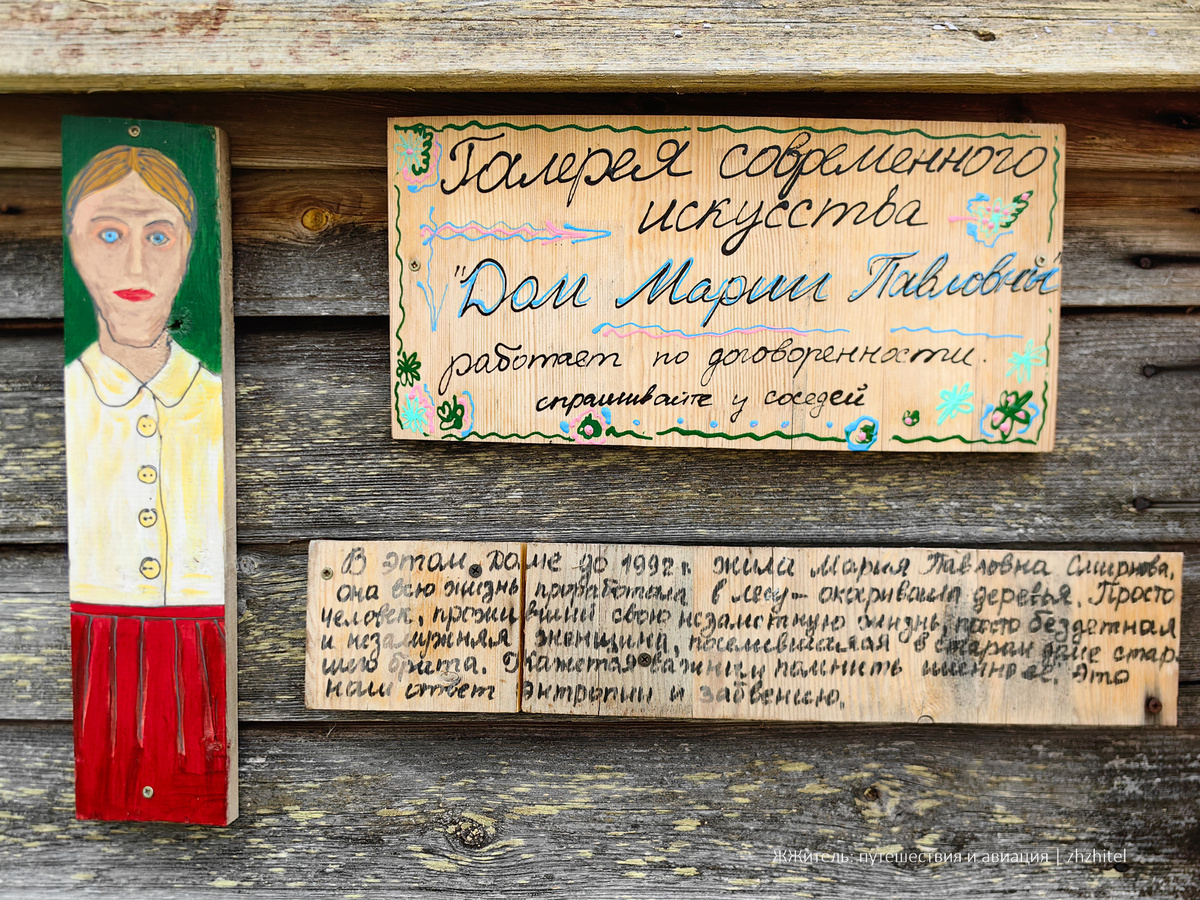 Галерея современного
искусства
"Дом Марии Павловны"
работает по договоренности.
спрашивайте у соседей
В этом доме до 1992 г. жила Мария Павловна Смирнова,
она всю жизнь проработала в лесу – окоривала деревья. Просто
человек, проживший свою незаметную жизнь, просто бездетная
и незамужняя женщина, поселившаяся в старом доме стар-
шего брата. Кажется важным помнить именно её. Это
наш ответ энтропии и забвению.
ЖЖитель: путешествия и авиация | zhzhitel